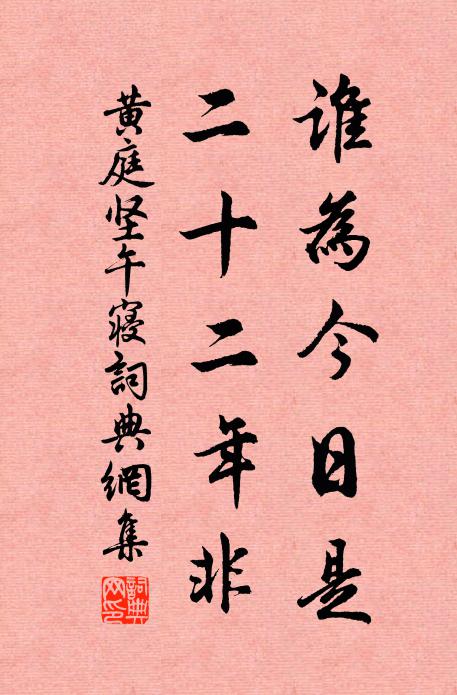 谁為今日是
二十二年非
黄庭坚午寝詞典網集
詞典網印